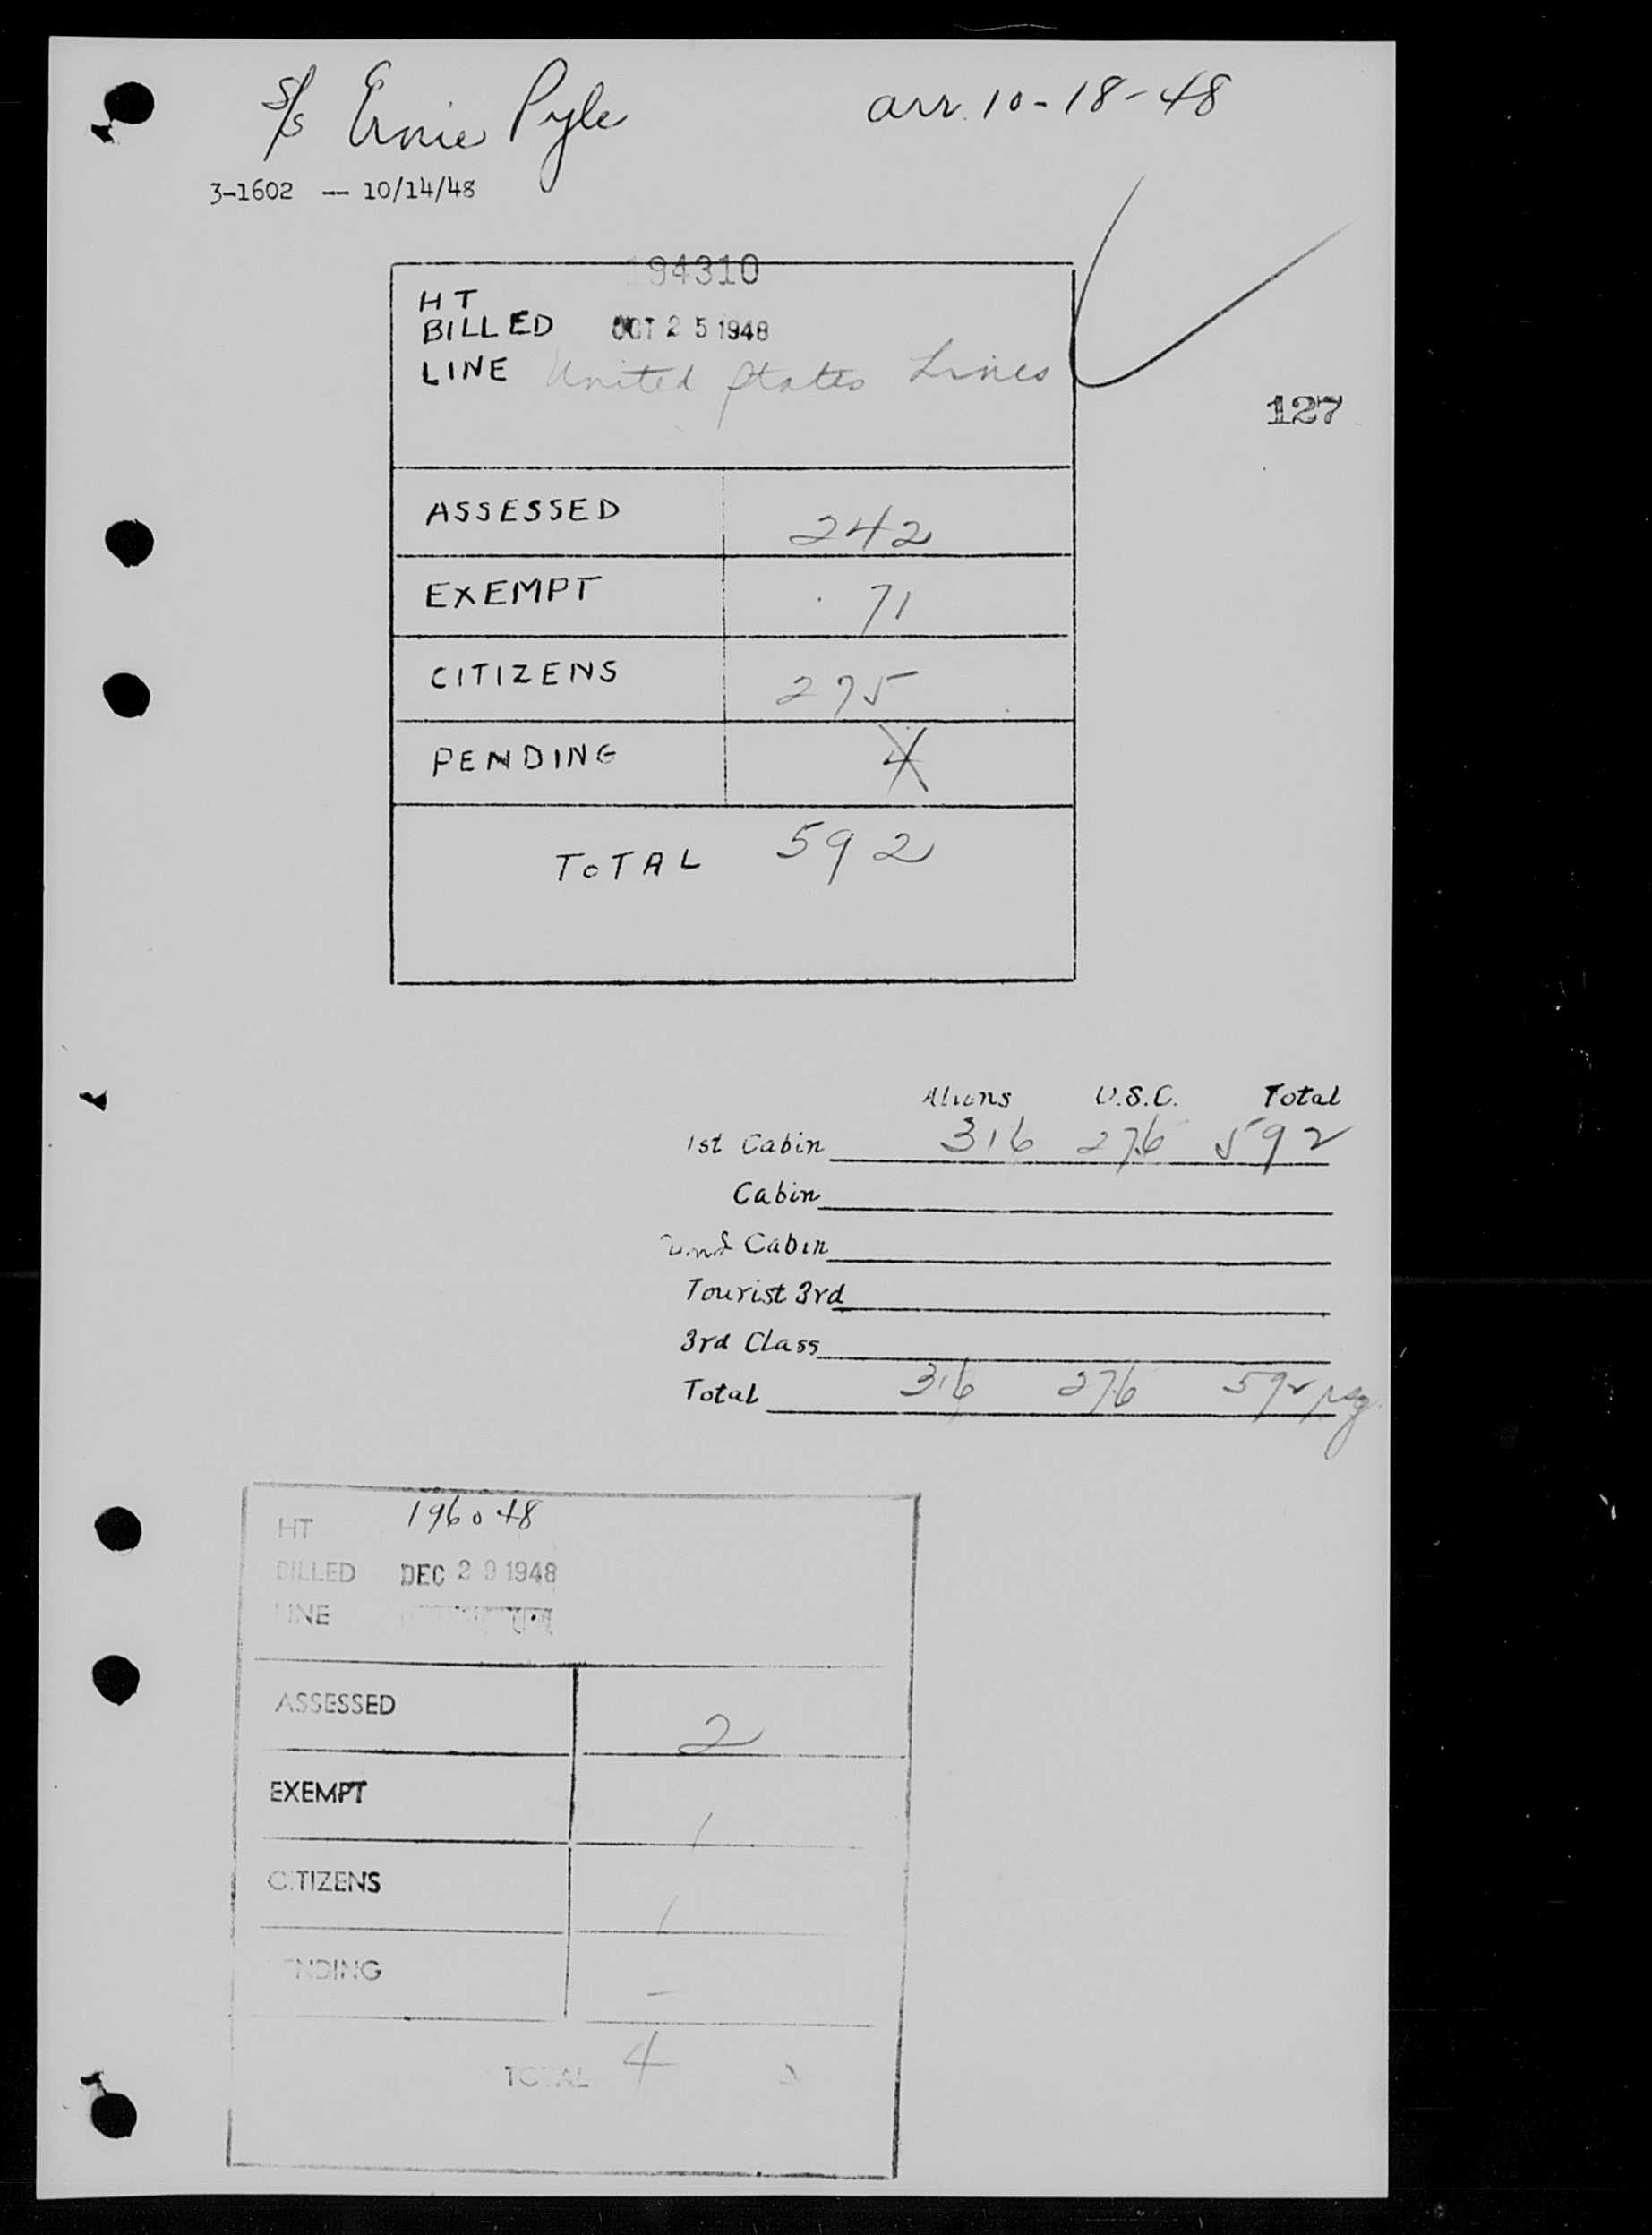 S/S Ernie Pyle arr. 10-18-48
3-1602 -- 10/14/48
194310
HT
BILLED OCT 25 1948
LINE United States Lines
127
ASSESSED 242
EXEMPT 71
CITIZENS 275
PENDING 4
TOTAL 592
Aliens U.S.C. Total
1st Cabin 316 276 592
Cabin
2nd Cabin
Tourist 3rd
3rd Class
Total 316 276 592 psg.
HT 196048
BILLED DEC 29 1948
LINE
ASSESSED 2
EXEMPT 1
CITIZENS 1
PENDING –
TOTAL 4